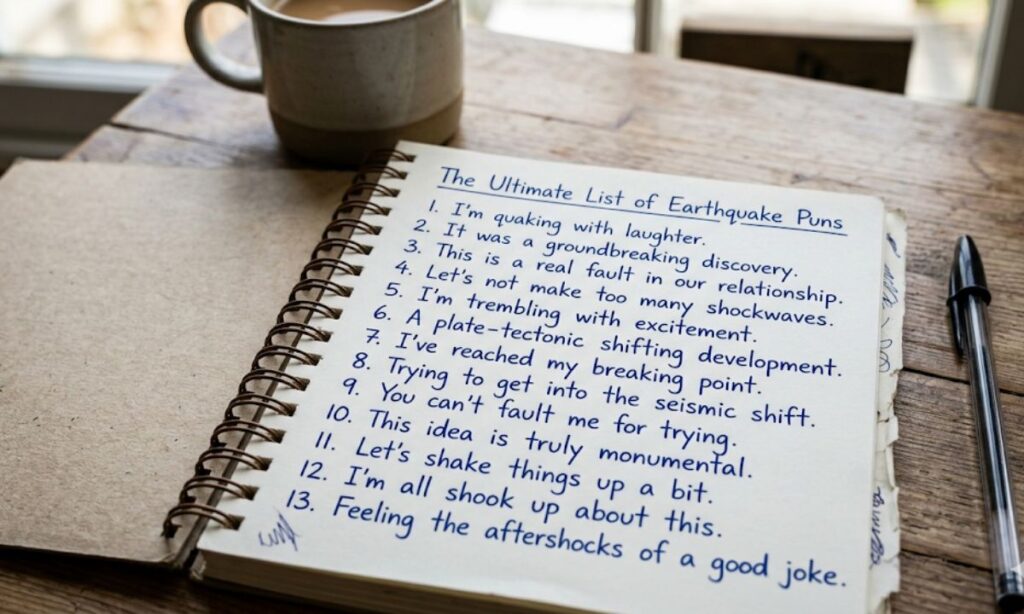 The Ultimate List of Earthquake Puns
1. I'm quaking with laughter.
2. It was a groundbreaking discovery.
3. This is a real fault in our relationship.
4. Let's not make too many shockwaves.
5. I'm trembling with excitement.
6. A plate-tectonic shifting development.
7. I've reached my breaking point.
8. Trying to get into the seismic shift.
9. You can't fault me for trying.
10. This idea is truly monumental.
11. Let's shake things up a bit.
12. I'm all shook up about this.
13. Feeling the aftershocks of a good joke.